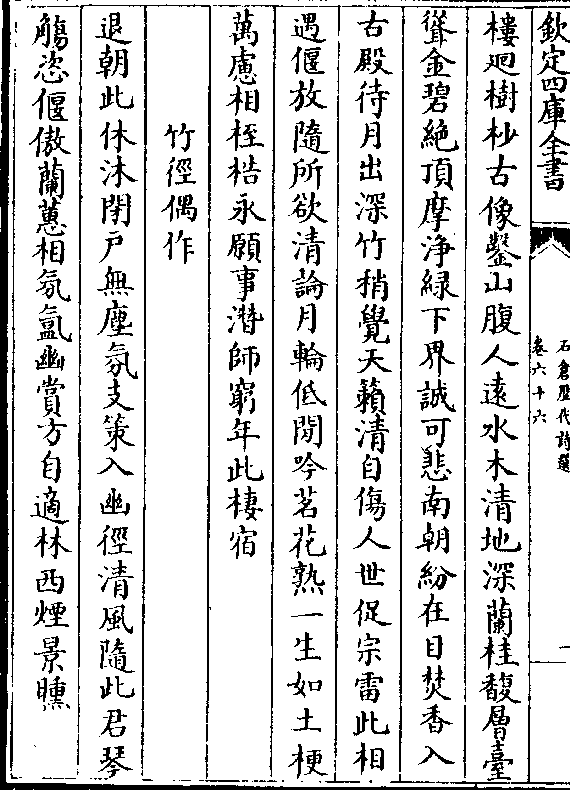 欽定四庫全書
石倉歷代詩選
卷六十六
樓迴樹杪古像鑿山腹人遠水木清地深蘭桂馥層臺
聳金碧絶頂摩浄綠下界誠可悲南朝紛在目焚香入
古殿待月出深竹稍覺天籟清自傷人世促宗雷此相
遇偃放隨所欲清論月輪低閒吟茗花熟一生如土梗
萬慮相桎梏永願事潛師窮年此棲宿
竹徑偶作
退朝此休沐閉戸無塵氛支策入幽徑清風隨此君琴
觴恣偃傲蘭蕙相氛氲幽賞方自適林西煙景曛